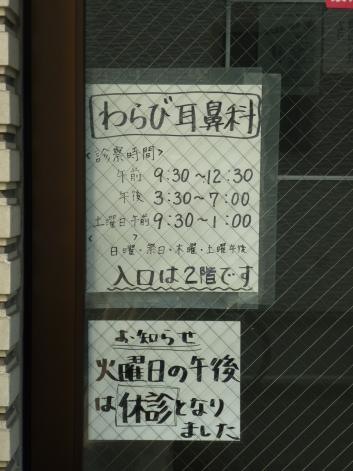 わらび耳鼻科
<診察時間>
午前 9:30~12:30
午後 3:30~7:00
土曜日午前 9:30~1:00
< >
日曜・祭日・木曜・土曜午後
入口は2階です
お知らせ
火曜日の午後
は休診となり
ました